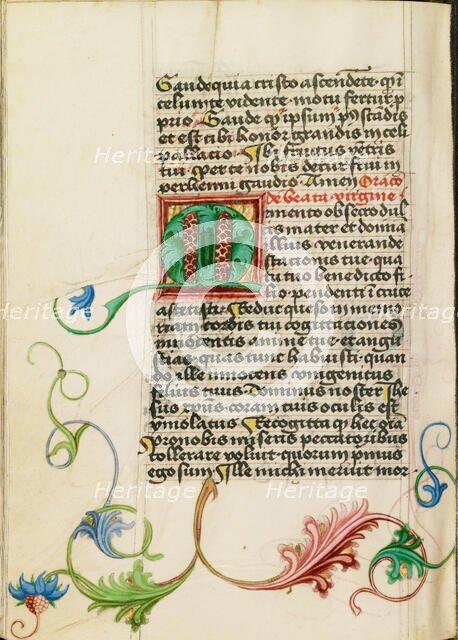 Gaude quia cristo ascendente · qui in
celum te vidente · motu fertur p
prio · Gaude qʒ ipsum pꝰ scādis
et est tibi honor grandis in celi
palacio · Vbi fructus vētris
tui · Per te nobis detur frui in
perhenni gaudio · Amen Oracō
de beata virgine
Memento obsecro dul
mater et domna
illius venerande
stationis tue · qua
tu tuo benedicto fi
lio pendenti in cruce
astitisti · Reduc queso in me
cordis tui cogitaciones
innocentis anime tue et angu
stiae quas tunc habuisti · quan
do ille innocens unigenitus
filius tuus dominus noster Ihe
sus xp̄us coram tuis oculis est
ymolatus Recogita qʒ hec gra
pro nobis miseris peccatoribus
tollerare voluit quorum primus
ego sum · Ille michi meruit mor
Heritage